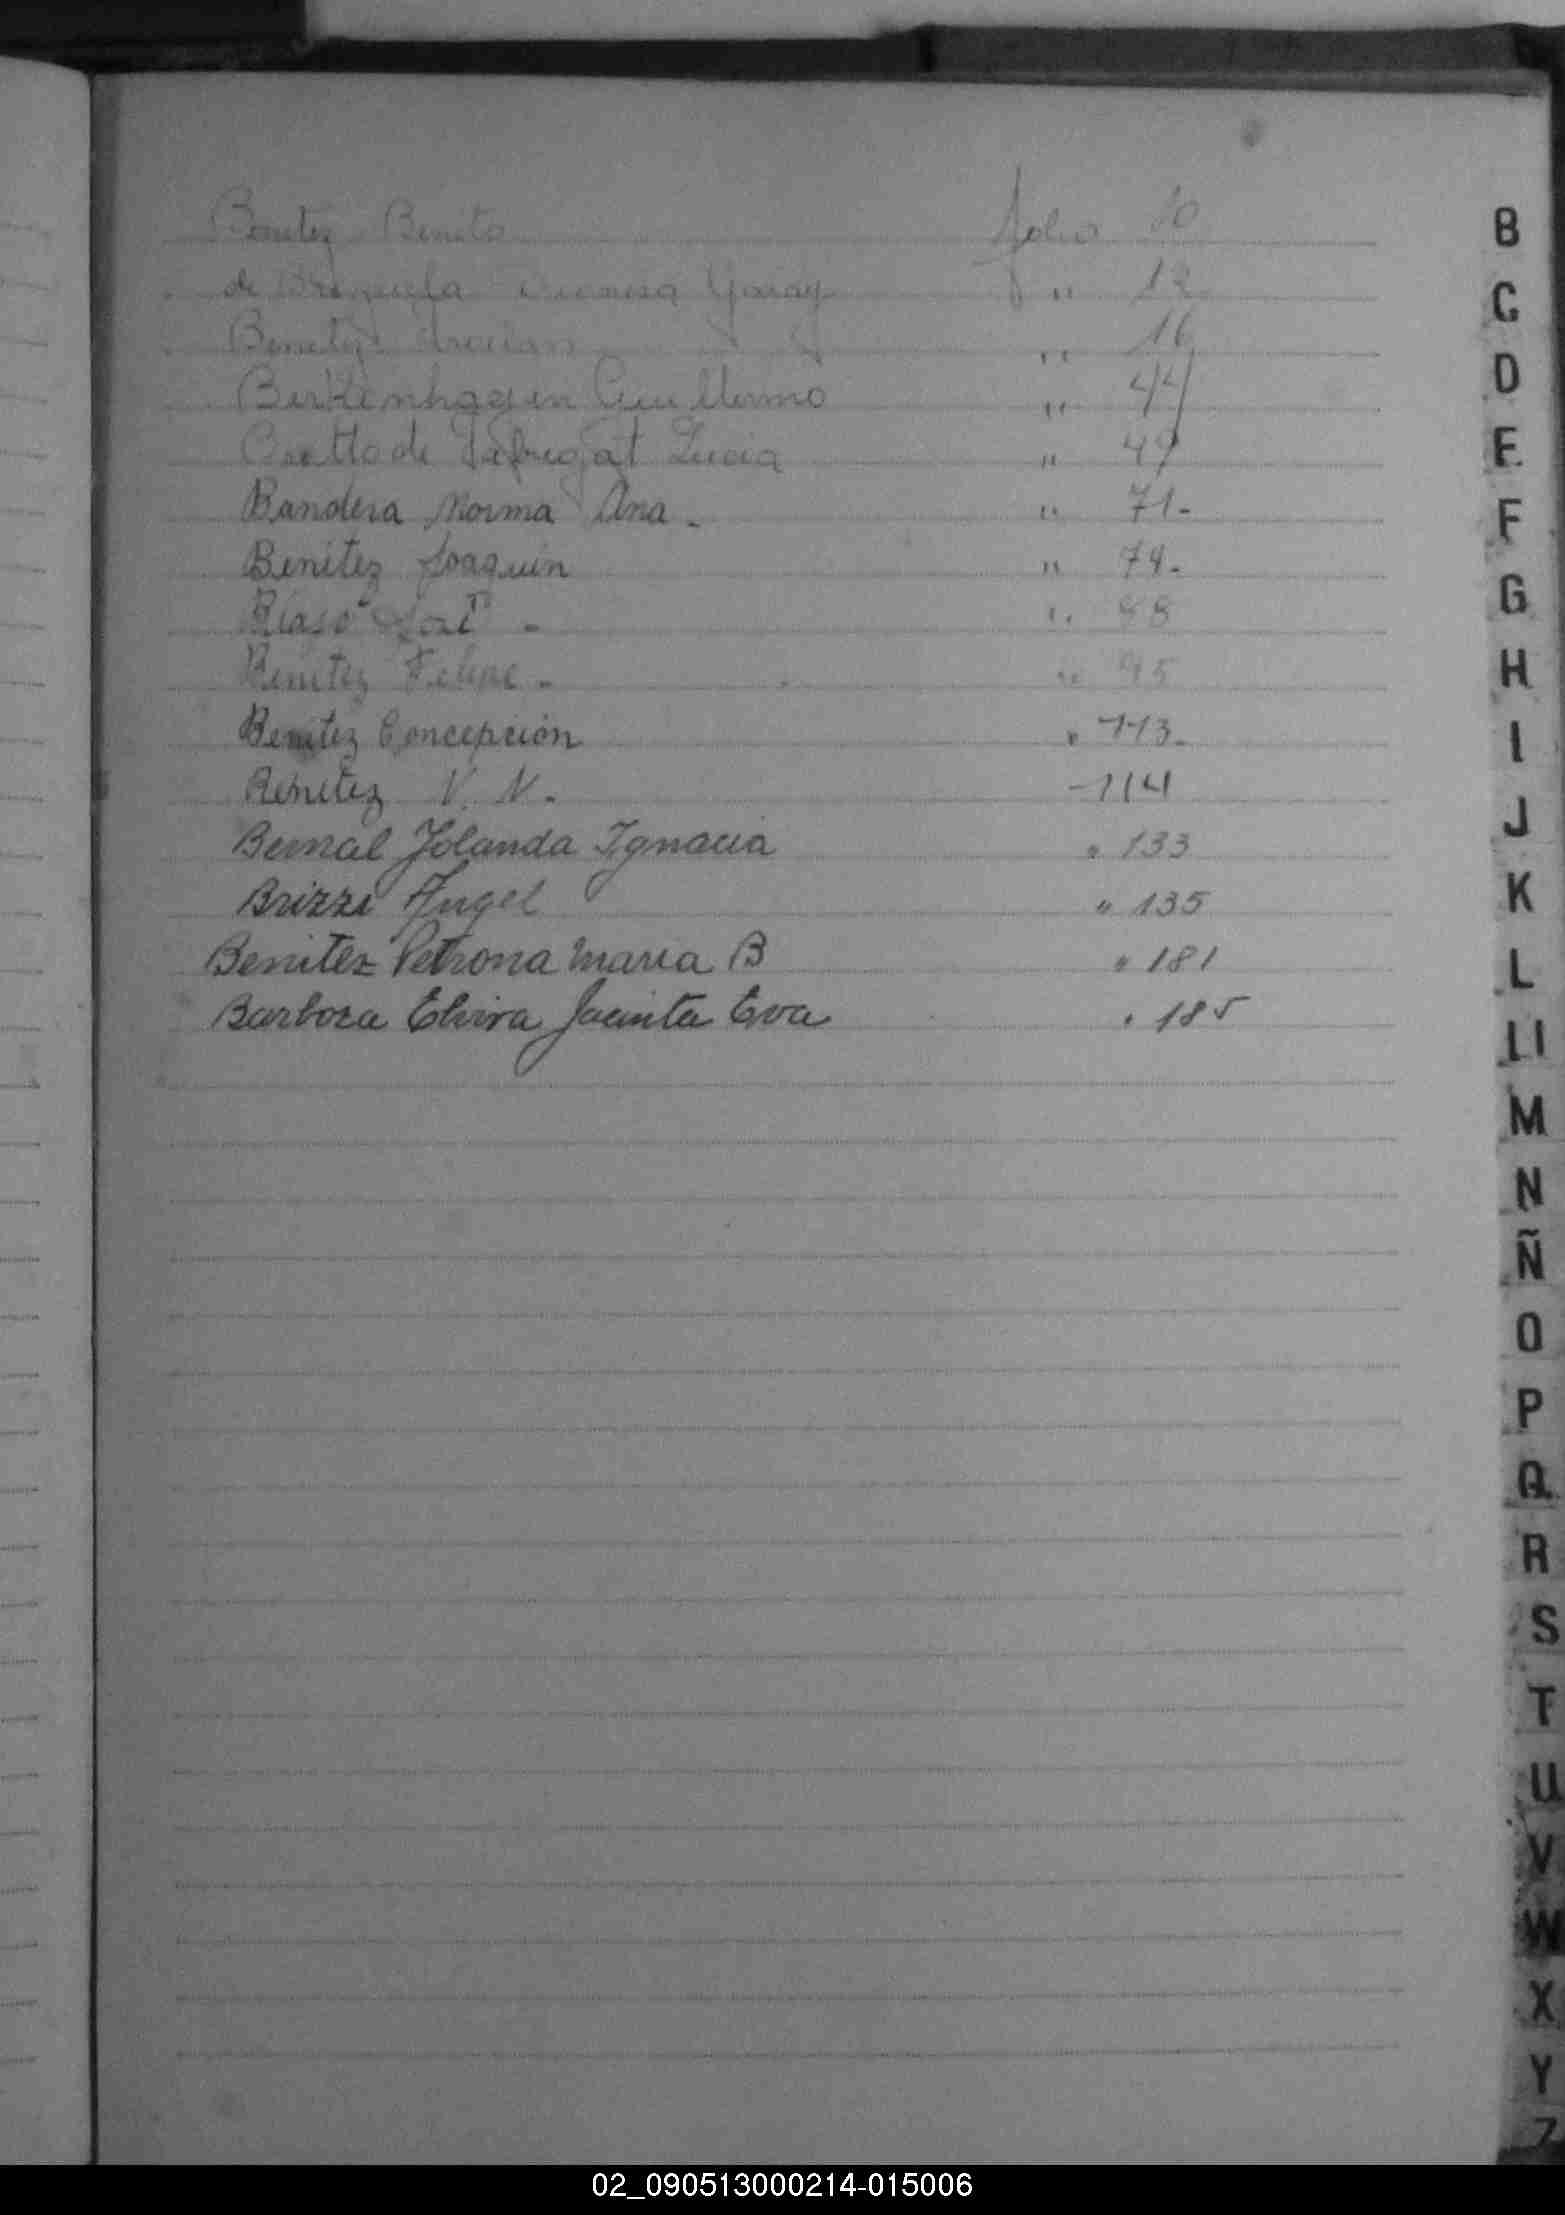 Benitez Benito folio 10
de Garay " 12
Benitez " 16
Berkenhagen Guillermo " 44
de Lucia " 49
Bandera Norma Ana - " 71-
Benitez Joaquin " 74-
José - " 88
Benitez Felipe - " 95
Benitez Concepción " 113-
Benitez V. N. - -114
Bernal Yolanda Ignacia " 133
Brizzi Angel " 135
Benitez Petrona Maria B " 181
Barboza Elvira Jacinta Eva " 185
B
C
D
E
F
G
H
I
J
K
L
Ll
M
N
Ñ
O
P
Q
R
S
T
U
V
W
X
Y
Z
02_090513000214-015006